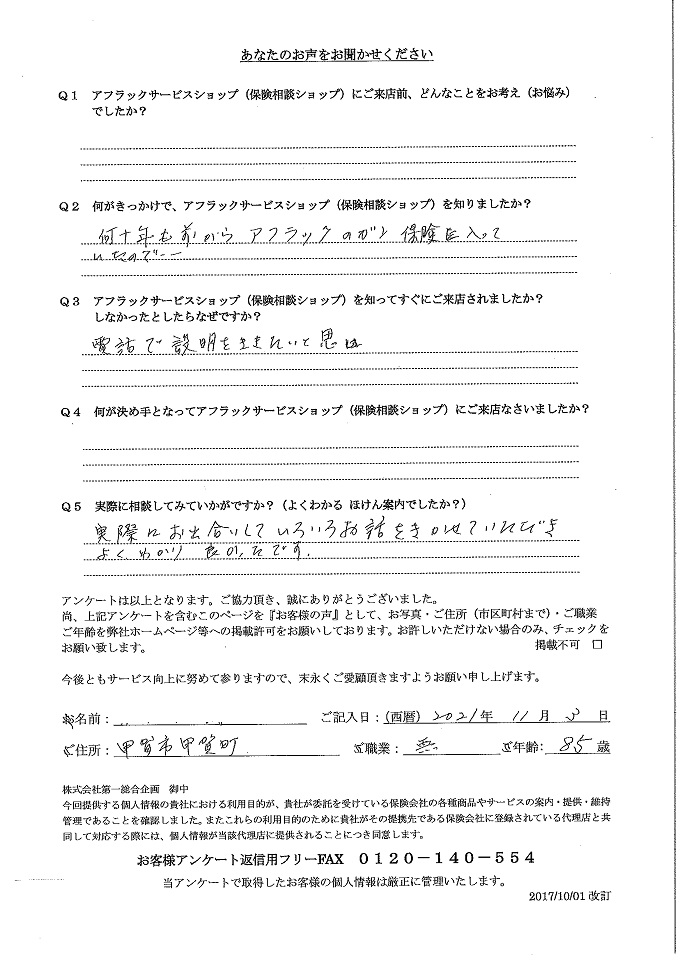 あなたのお声をお聞かせください
Q1 アフラックサービスショップ（保険相談ショップ）にご来店前、どんなことをお考え（お悩み）
でしたか？
Q2 何がきっかけで、アフラックサービスショップ（保険相談ショップ）を知りましたか？
何十年も前から アフラックのガン保険に入って
いたので
Q3 アフラックサービスショップ（保険相談ショップ）を知ってすぐにご来店されましたか？
しなかったとしたらなぜですか？
電話で説明を と思
Q4 何が決め手となってアフラックサービスショップ（保険相談ショップ）にご来店なさいましたか？
Q5 実際に相談してみていかがですか？（よくわかる ほけん案内でしたか？）
実際にお出合いしていろいろお話をきかせていただき
よくわかり 良かったです.
アンケートは以上となります。ご協力頂き、誠にありがとうございました。
尚、上記アンケートを含むこのページを『お客様の声』として、お写真・ご住所（市区町村まで）・ご職業
ご年齢を弊社ホームページ等への掲載許可をお願いしております。お許しいただけない場合のみ、チェックを
お願い致します。 掲載不可 □
今後ともサービス向上に努めて参りますので、末永くご愛顧頂きますようお願い申し上げます。
お名前： ご記入日：（西暦）2021年 11月 日
ご住所：甲賀市甲賀町 ご職業：無 ご年齢：85歳
株式会社第一総合企画 御中
今回提供する個人情報の貴社における利用目的が、貴社が委託を受けている保険会社の各種商品やサービスの案内・提供・維持
管理であることを確認しました。またこれらの利用目的のために貴社がその提携先である保険会社に登録されている代理店と共
同して対応する際には、個人情報が当該代理店に提供されることにつき同意します。
お客様アンケート返信用フリーFAX 0120－140－554
当アンケートで取得したお客様の個人情報は厳正に管理いたします。
2017/10/01 改訂